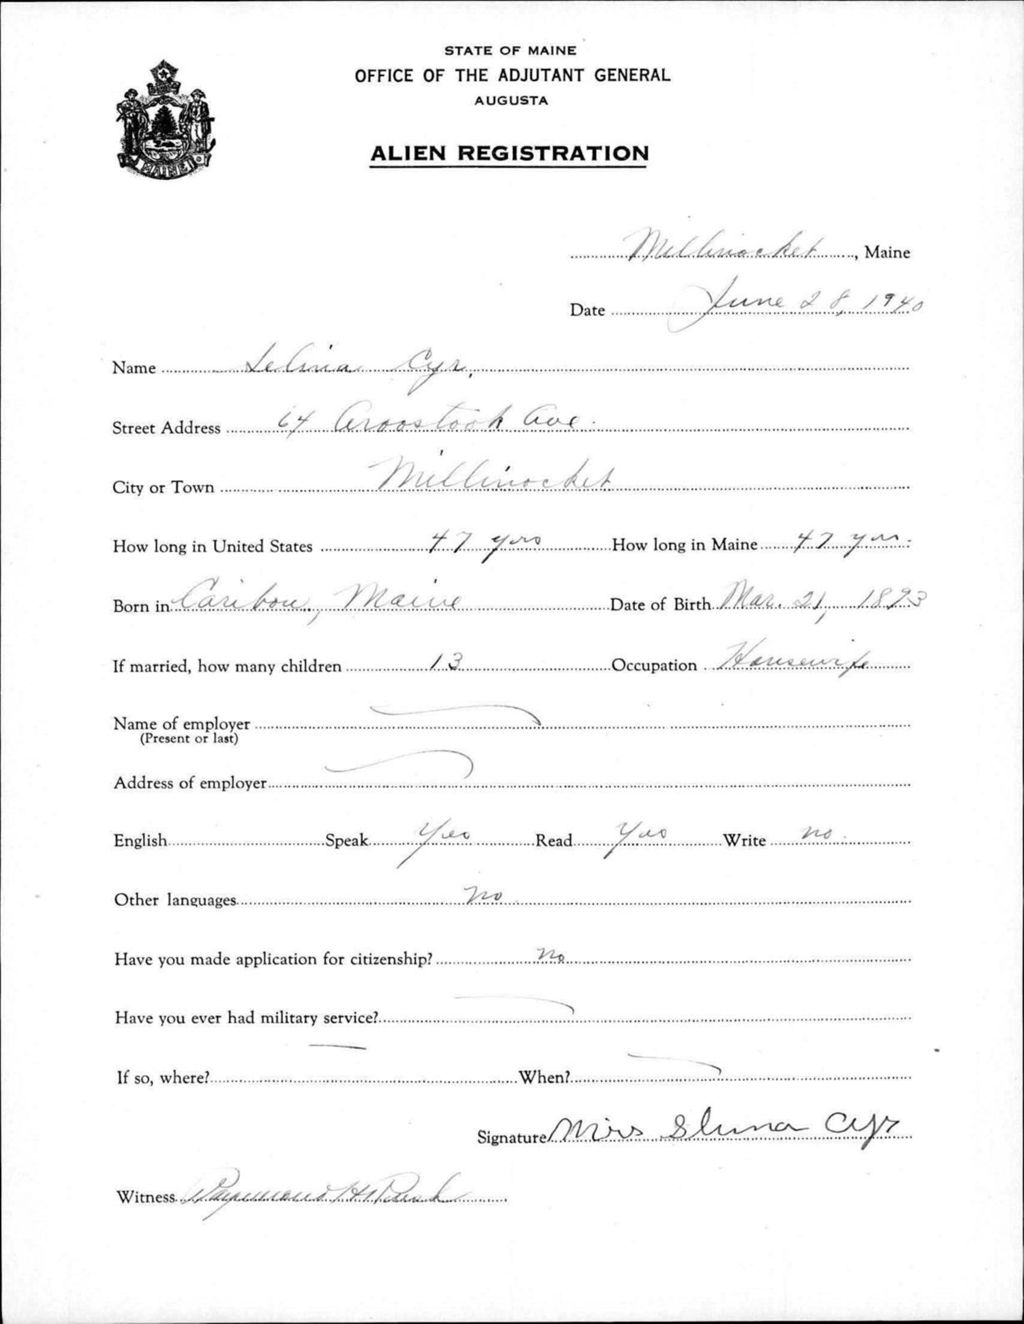 STATE OF MAINE
OFFICE OF THE ADJUTANT GENERAL
AUGUSTA
MAINE
ALIEN REGISTRATION
Millinocket, Maine
Date June 28, 1940
Name Selina Cyr.
Street Address 64 Aroostook Ave.
City or Town Millinocket
How long in United States 47 yrs How long in Maine 47 yrs.
Born in Caribou, Maine Date of Birth Mar. 21, 1893
If married, how many children 13 Occupation Housewife
Name of employer
(Present or last)
Address of employer
English Speak Yes Read Yes Write no.
Other languages no
Have you made application for citizenship? no
Have you ever had military service?
If so, where? When?
Signature Mrs Cyr
Witness Raymond H.